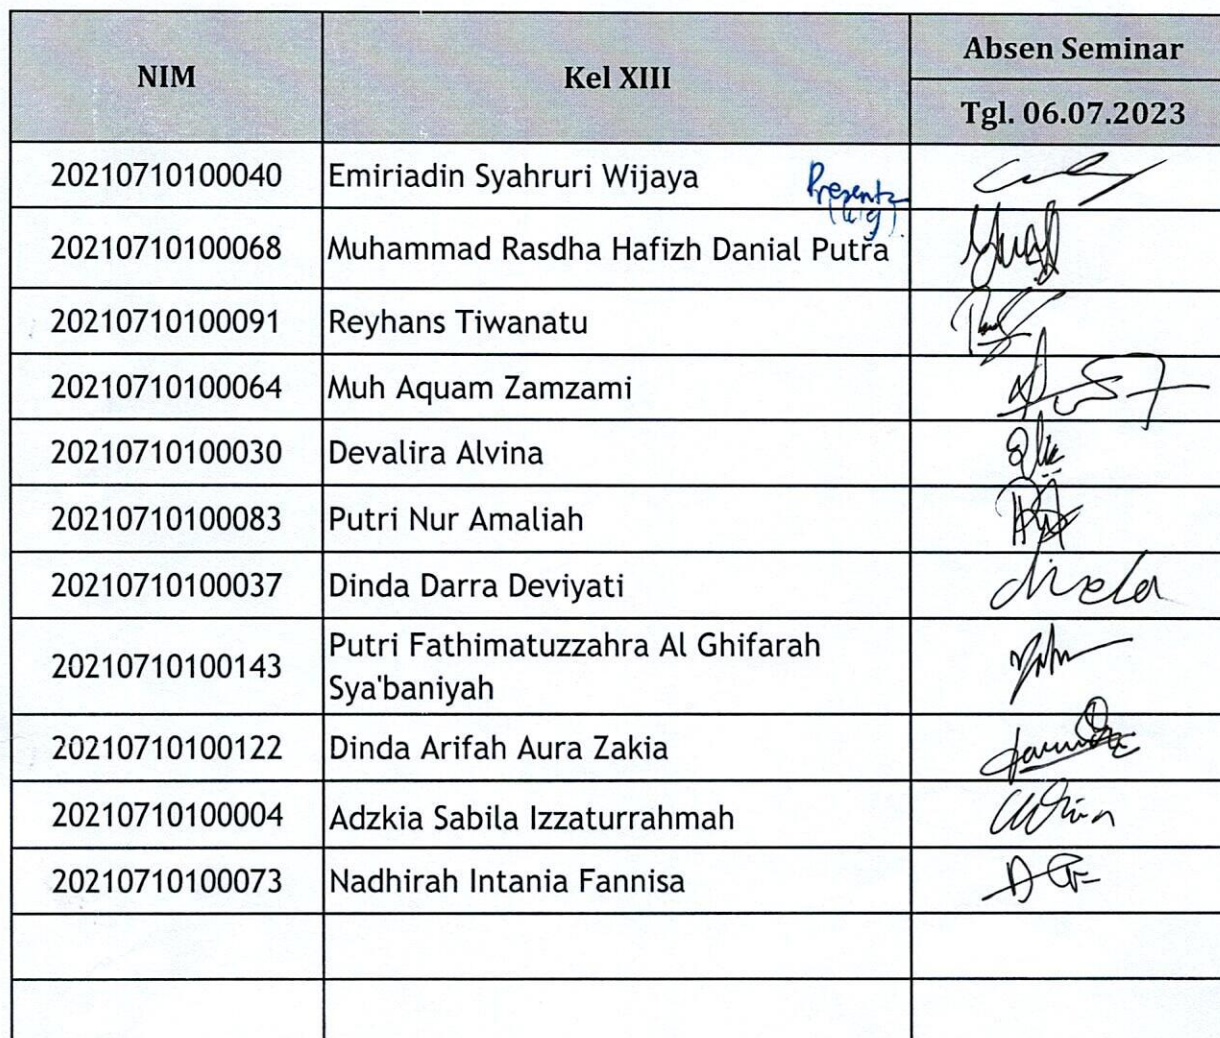 NIM Kel XIII Absen Seminar
Tgl. 06.07.2023
20210710100040 Emiriadin Syahruri Wijaya
20210710100068 Muhammad Rasdha Hafizh Danial Putra
20210710100091 Reyhans Tiwanatu
20210710100064 Muh Aquam Zamzami
20210710100030 Devalira Alvina
20210710100083 Putri Nur Amaliah
20210710100037 Dinda Darra Deviyati
20210710100143 Putri Fathimatuzzahra Al Ghifarah
Sya'baniyah
20210710100122 Dinda Arifah Aura Zakia
20210710100004 Adzkia Sabila Izzaturrahmah
20210710100073 Nadhirah Intania Fannisa